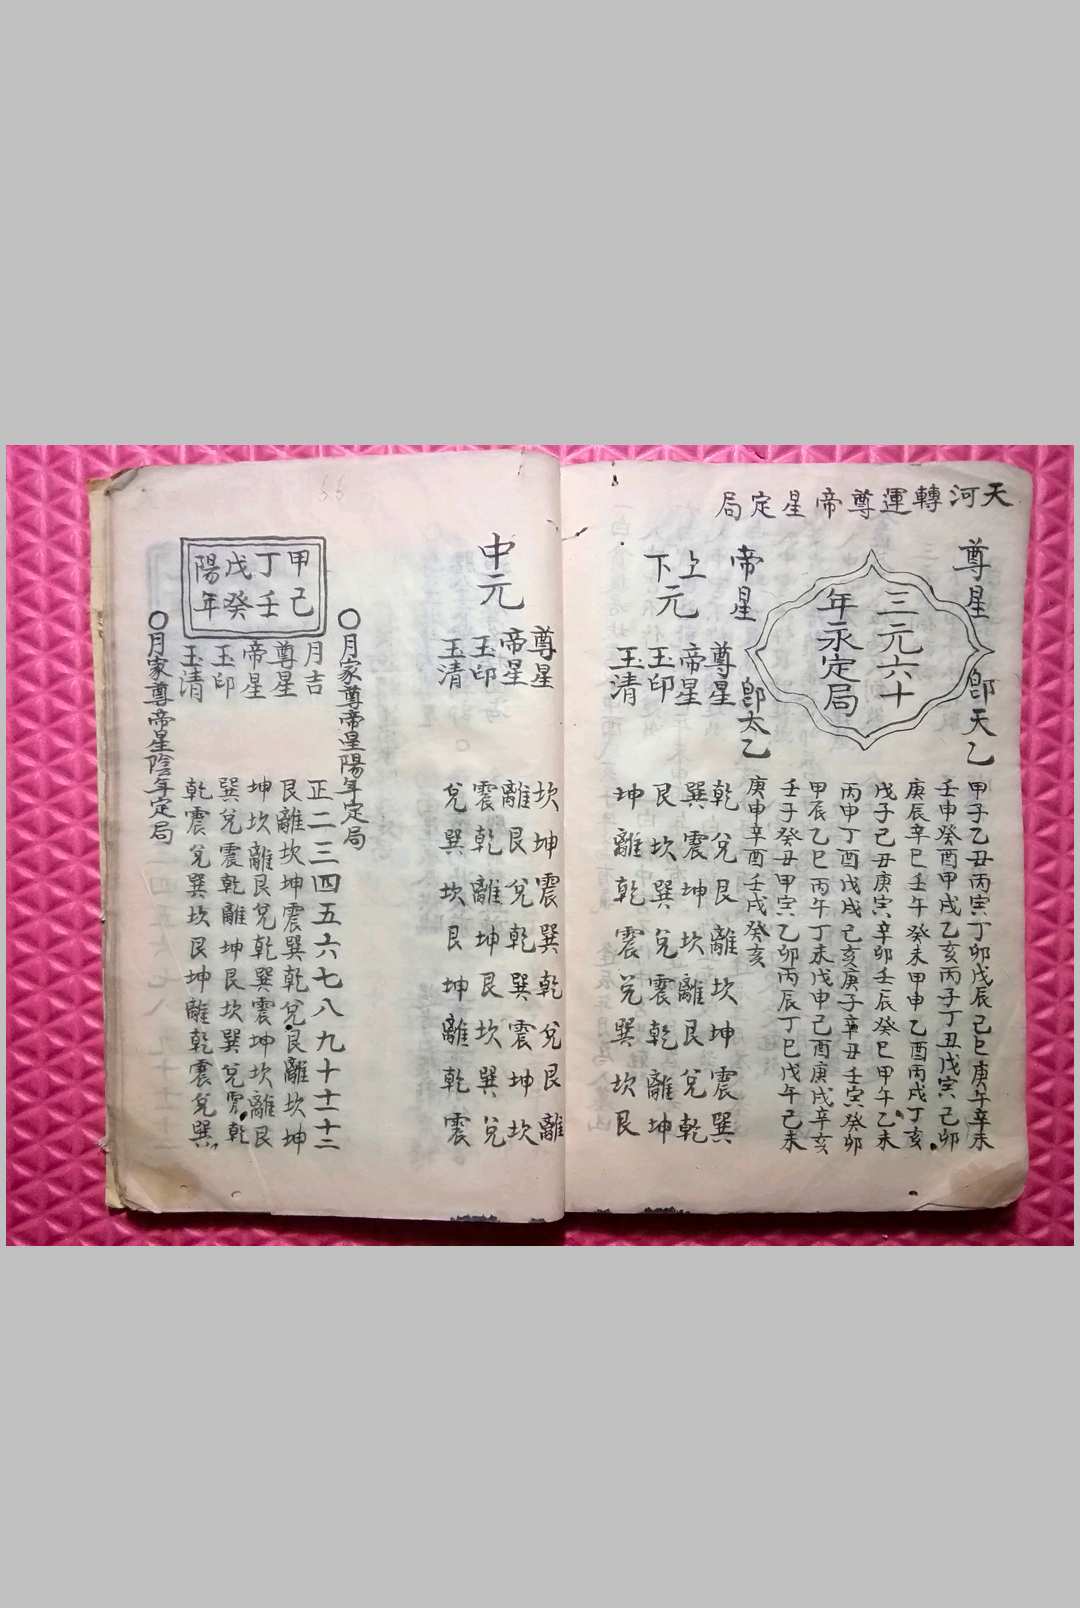 天河轉運尊帝星定局
尊星 即天乙
三元六十
年永定局
帝星 即太乙
甲子乙丑丙寅丁卯戊辰己巳庚午辛未
壬申癸酉甲戌乙亥丙子丁丑戊寅己卯
庚辰辛巳壬午癸未甲申乙酉丙戌丁亥
戊子己丑庚寅辛卯壬辰癸巳甲午乙未
丙申丁酉戊戌己亥庚子辛丑壬寅癸卯
甲辰乙巳丙午丁未戊申己酉庚戌辛亥
壬子癸丑甲寅乙卯丙辰丁巳戊午己未
庚申辛酉壬戌癸亥
上下元
尊星 乾兌艮離坎坤震巽
帝星 巽震坤坎離艮兌乾
玉印 艮坎巽兌震乾離坤
玉清 坤離乾震兌巽坎艮
中元
尊星 坎坤震巽乾兌艮離
帝星 離艮兌乾巽震坤坎
玉印 震乾離坤艮坎巽兌
玉清 兌巽坎艮坤離乾震
〇月家尊帝星陽年定局
甲己
丁壬
戊癸
陽年
月吉 正二三四五六七八九十十一十二
尊星 艮離坎坤震巽乾兌艮離坎坤
帝星 坤坎離艮兌乾巽震坤坎離艮
玉印 巽兌震乾離坤艮坎巽兌震乾
玉清 乾震兌巽坎艮坤離乾震兌巽
〇月家尊帝星陰年定局